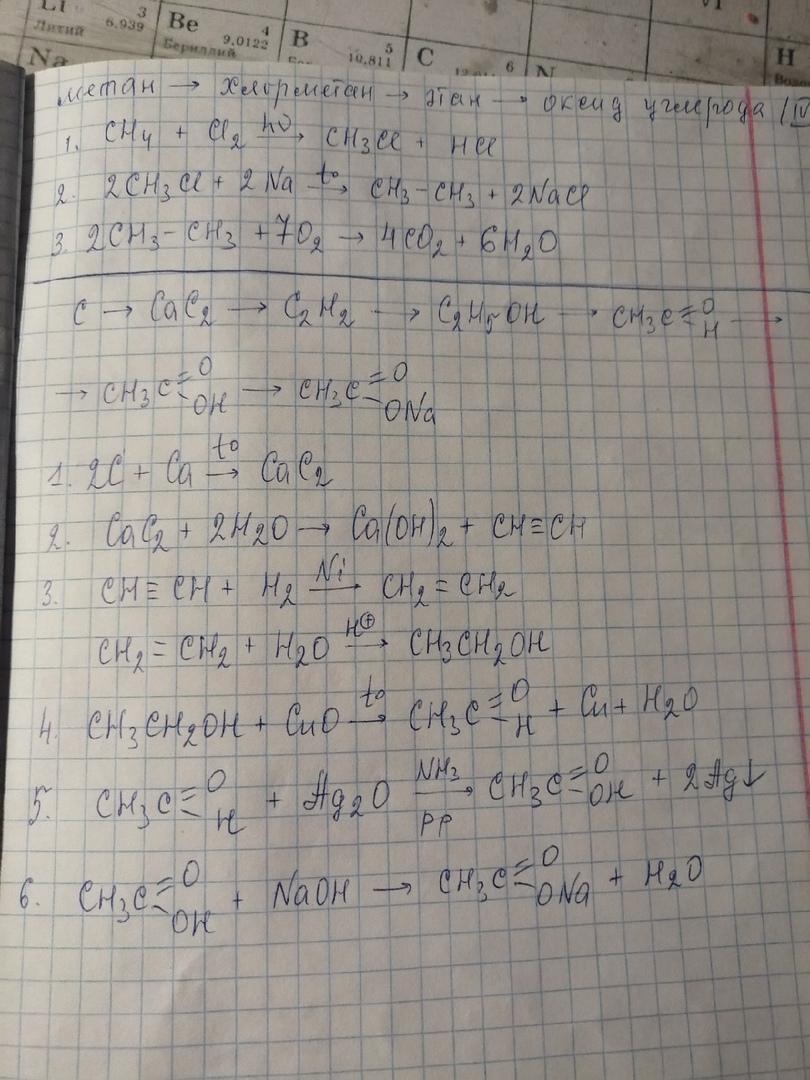 Li 3
Литий 6,939
Be 4
Бериллий 9,0122
B 5
10,811
C 6
N
VI
H
Na
метан → хлорметан → этан → оксид углерода (IV
1. CH4 + Cl2 hν→ CH3Cl + HCl
2. 2CH3Cl + 2Na t°→ CH3-CH3 + 2NaCl
3. 2CH3-CH3 + 7O2 → 4CO2 + 6H2O
C → CaC2 → C2H2 → C2H5OH → CH3C=O-H →
→ CH3C=O-OH → CH3C=O-ONa
1. 2C + Ca t°→ CaC2
2. CaC2 + 2H2O → Ca(OH)2 + CH≡CH
3. CH≡CH + H2 Ni→ CH2=CH2
CH2=CH2 + H2O H⊕→ CH3CH2OH
4. CH3CH2OH + CuO t°→ CH3C=O-H + Cu + H2O
5. CH3C=O-H + Ag2O NH3 рр→ CH3C=O-OH + 2Ag↓
6. CH3C=O-OH + NaOH → CH3C=O-ONa + H2O